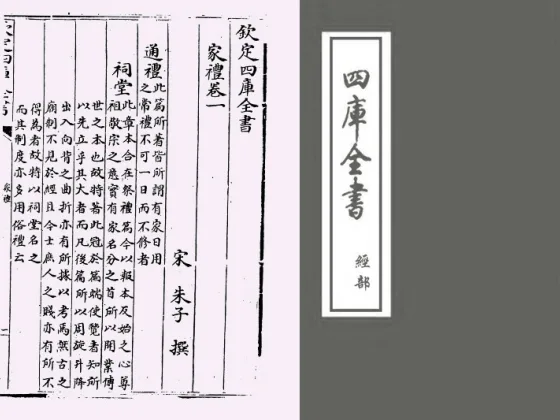 欽定四庫全書
家禮卷一
宋 朱子 撰
通禮此篇所著皆所謂有家日用
之常禮不可一日而不修者
祠堂此章本合在祭禮篇今以報本反始之心尊
祖敬宗之意實有家名分之首所以開業傳
世之本也故特著此冠於篇端使覽者知所
以先立乎其大者而凡後篇所以周旋升降
出入向背之曲折亦有所據以考焉然古之
廟制不見於經且今士庶人之賤亦有所不
得為者故特以祠堂名之
而其制度亦多用俗禮云
欽定四庫全書
家禮
四庫全書
經部